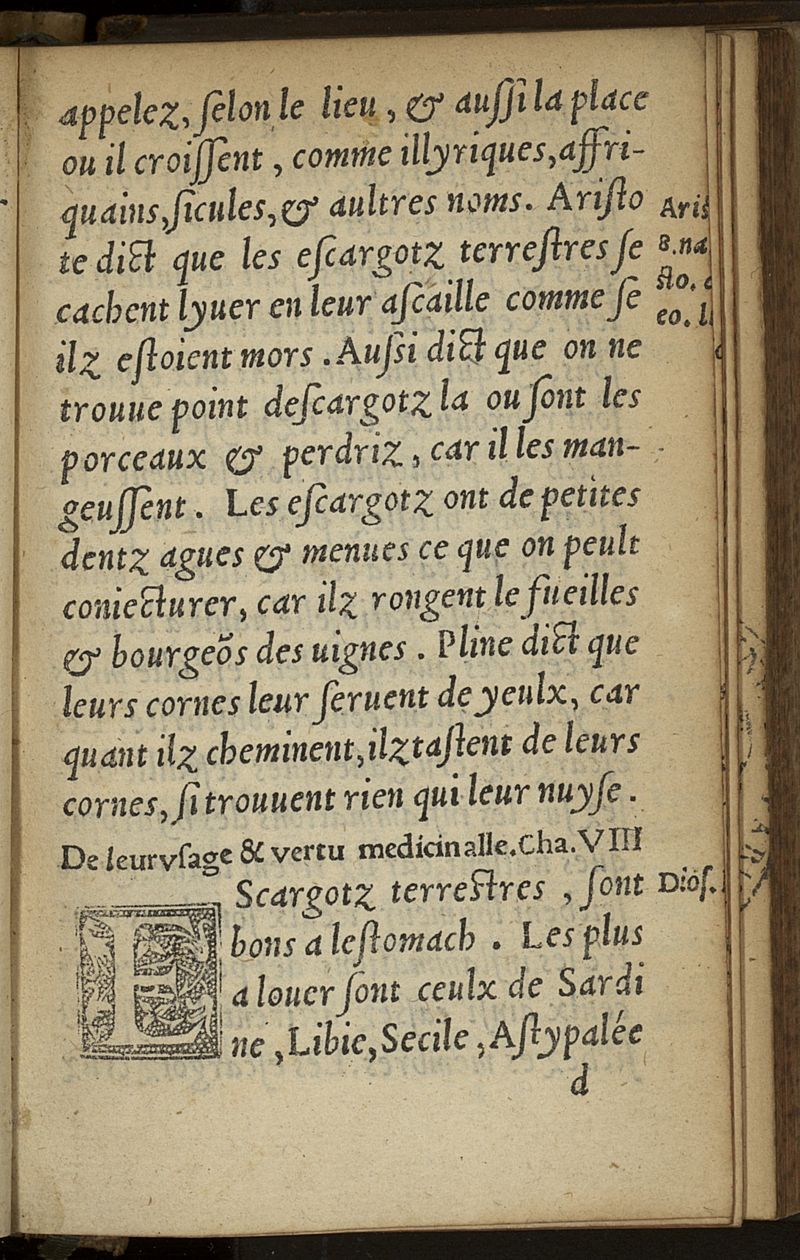 appelez, ſelon le lieu, & auſſi la place
ou il croiſſent, comme illyriques, affri-
quains, ſicules, & aultres noms. Ariſto
te dict que les eſcargotz terreſtres ſe
cachent lyuer en leur aſcaille comme ſe
ilz eſtoient mors. Auſsi dict que on ne
trouue point deſcargotz la ou ſont les
porceaux & perdriz, car il les man-
geuſſent. Les eſcargotz ont de petites
dentz agues & menues ce que on peult
coniecturer, car ilz rongent le fueilles
& bourgeõs des uignes. Pline dict que
leurs cornes leur ſeruent de yeulx, car
quant ilz cheminent, ilz taſtent de leurs
cornes, ſi trouuent rien qui leur nuyſe.
De leur vſage & vertu medicinalle. Cha. VIII
EScargotz terreſtres, ſont
bons a leſtomach. Les plus
a louer ſont ceulx de Sardi
ne, Libie, Secile, Aſtypalée
d
Ariſ
8. na
ſto.
eo. l
Dioſ.